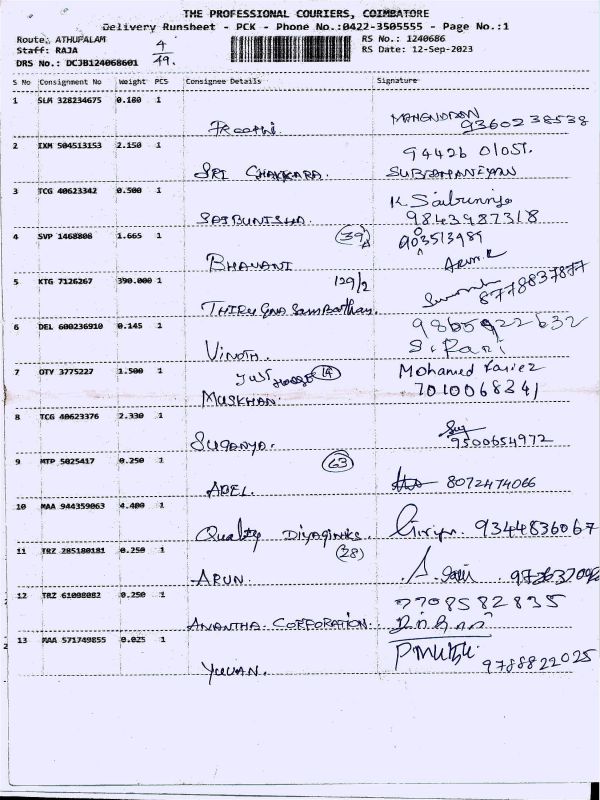 THE PROFESSIONAL COURIERS, COIMBATORE
Delivery Runsheet - PCK - Phone No.:0422-3505555 - Page No.:1
Route: ATHUPALAM
Staff: RAJA
DRS No.: DCJB124068601
4/49.
RS No.: 1240686
RS Date: 12-Sep-2023
S No Consignment No Weight PCS Consignee Details Signature
1 SLM 328234675 0.180 1
Preethi. MAHENDRAN 9360238538
2 IXM 504513153 2.150 1
SRI CHAKKARA. 94426 01051. SUBRAMANIYAN
3 TCG 40623342 0.500 1
SAIBUNISHA. K Saibunniya 9843987318
4 SVP 1468808 1.665 1
BHAVANI (39A) ARUN.K
5 KTG 7126267 390.000 1
129/2
THIRU Gna Sambatham. 8778837877
6 DEL 600236910 0.145 1
VINOTH. 9865922632 S. Rani
7 OTY 3775227 1.500 1
(14)
MUSKHAN. Mohamed 7010068341
8 TCG 40623376 2.330 1
SUGANYA. 9500654972
9 MTP 5025417 0.250 1
(63)
ABEL. 8072474066
10 MAA 944359063 4.400 1
Quality 9344836067
11 TRZ 285180181 0.250 1
(28)
ARUN.
12 TRZ 61098082 0.250 1
ANANTHA CORPORATION. 7708582835
13 MAA 571749855 0.025 1
YUVAN. 9788822025